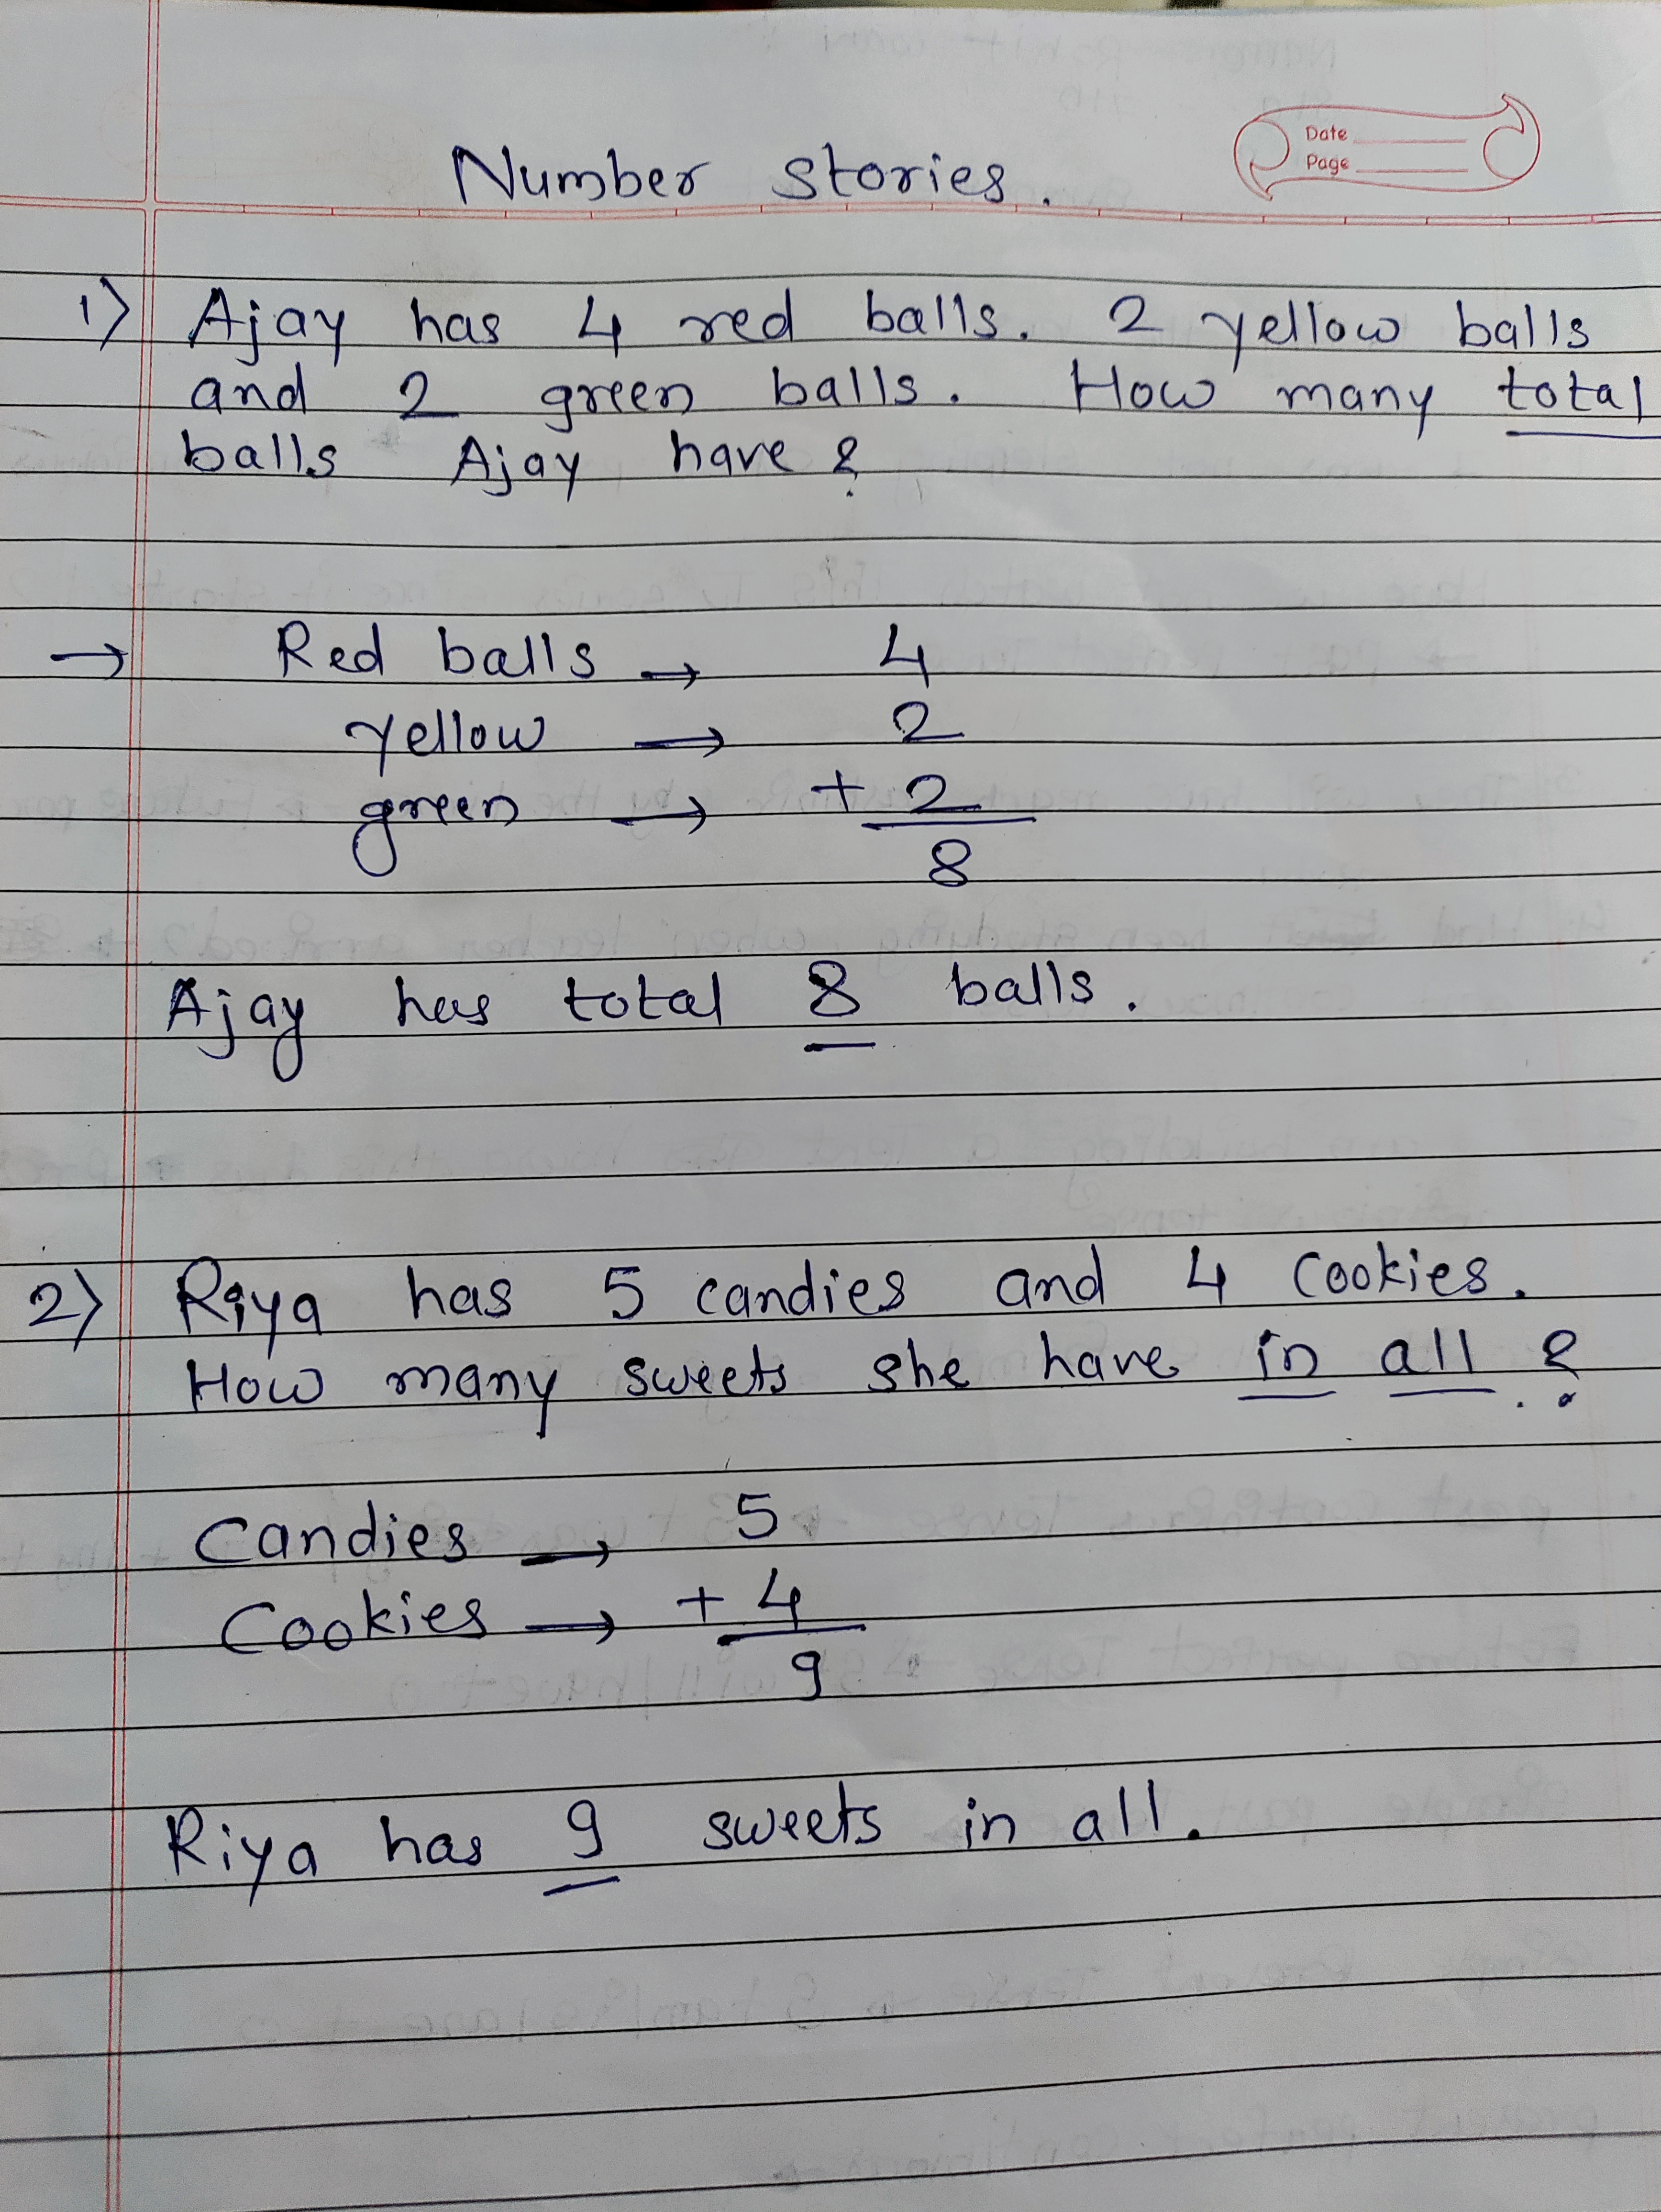 Date
Page
Number stories.
1) Ajay has 4 red balls. 2 yellow balls
and 2 green balls. How many total
balls Ajay have ?
→ Red balls → 4
yellow → 2
green → + 2
8
Ajay has total 8 balls.
2) Riya has 5 candies and 4 cookies.
How many sweets she have in all ?
Candies → 5
Cookies → + 4
9
Riya has 9 sweets in all.